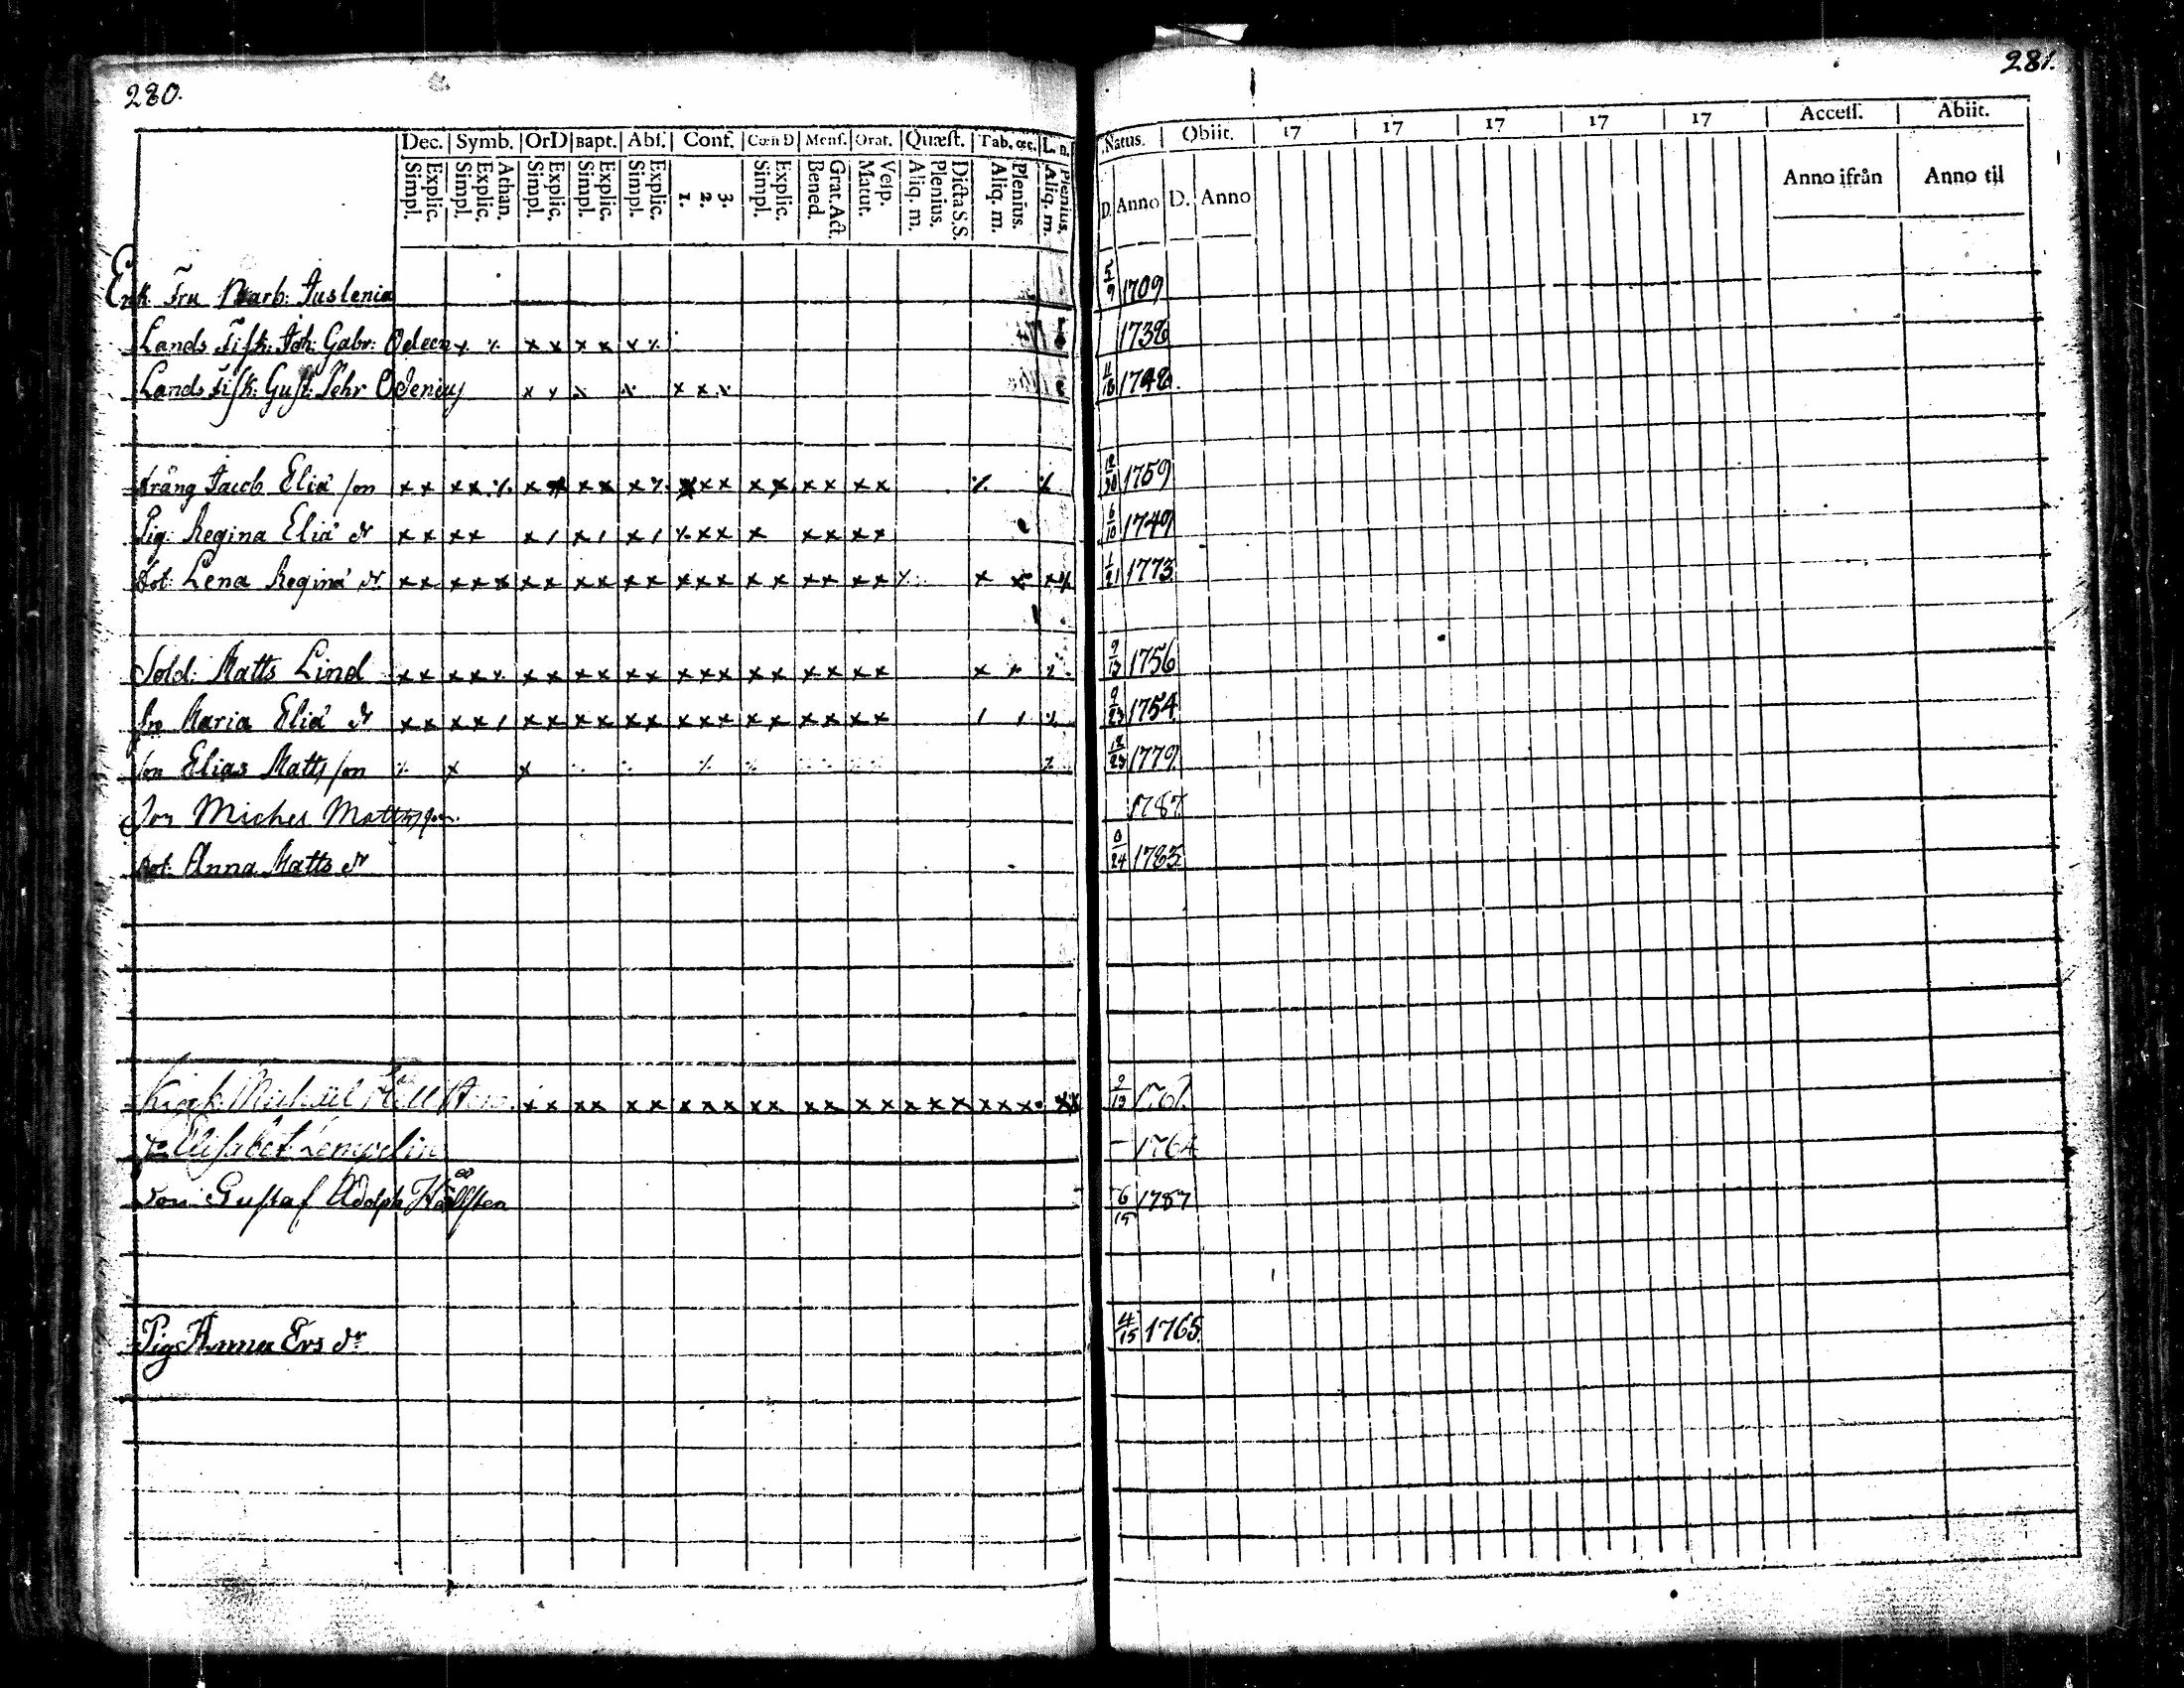 280.
281.
Dec. Symb. OrD Bapt. Abſ. Conf. Cœn D Menſ. Orat. Quæſt. Tab. œc. L. n. Natus. Obiit. 17 17 17 17 17 Acceſſ. Abiit.
Simpl. Explic. Simpl. Explic. Athan. Simpl. Explic. Simpl. Explic. Simpl. Explic. 1. 2. 3. Simpl. Explic. Bened. Grat. Act. Matut. Veſp. Aliq. m. Plenius. Dicta S.S. Aliq. m. Plenius. Aliq. m. Plenius. D. Anno D. Anno Anno ifrån Anno til
Enk. Fru Barb: Juslenia 1709
Lands Fiſk: Joh: Gabr: Odeen x ٪ x x x x x ٪ 1738
Lands Fiſk: Guſt: Pehr Odenius x x x x x x x 11/18 1748
dräng Jacob Eliæ ſon x x x x ٪ x x x x x ٪ x x x x x x x x x ٪ ٪ 12/30 1759
Pig: Regina Eliæ dr x x x x x / x / x / ٪ x x x x x x x 6/10 1749
dot: Lena Reginæ dr x x x x x x x x x x x x x x x x x x x x x x 1/21 1773
Sold: Matts Lind x x x x x x x x x x x x x x x x x x x x x x 9/13 1756
hu Maria Eliæ dr x x x x / x x x x x x x x x x x x x x x / / ٪ 9/23 1754
ſon Elias Matts ſon ٪ x x ٪ ٪ ٪ 12/23 1779
Son Michel Mattsſon 1787
dot: Anna Matts dr 24 1783
Michaël Hällsten x x x x x x x x x x x x x x x x x x x x x x x x 2/13 1761
Eliſabet 1764
Son Guſtaf Adolph Hällſten 6/15 1787
Pig Anna Ers dr 4/15 1765